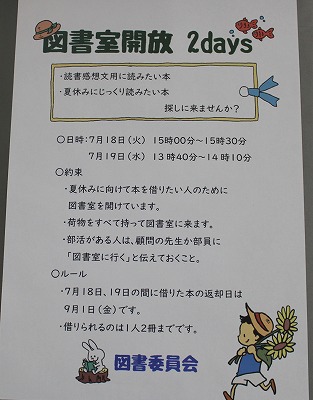 図書室開放 2days
・読書感想文用に読みたい本
・夏休みにじっくり読みたい本
探しに来ませんか？
○日時：7月18日（火） 15時00分～15時30分
7月19日（水） 13時40分～14時10分
○約束
・夏休みに向けて本を借りたい人のために
図書室を開けています。
・荷物をすべて持って図書室に来ます。
・部活がある人は、顧問の先生か部員に
「図書室に行く」と伝えておくこと。
○ルール
・7月18日、19日の間に借りた本の返却日は
9月1日（金）です。
・借りられるのは1人2冊までです。
図書委員会